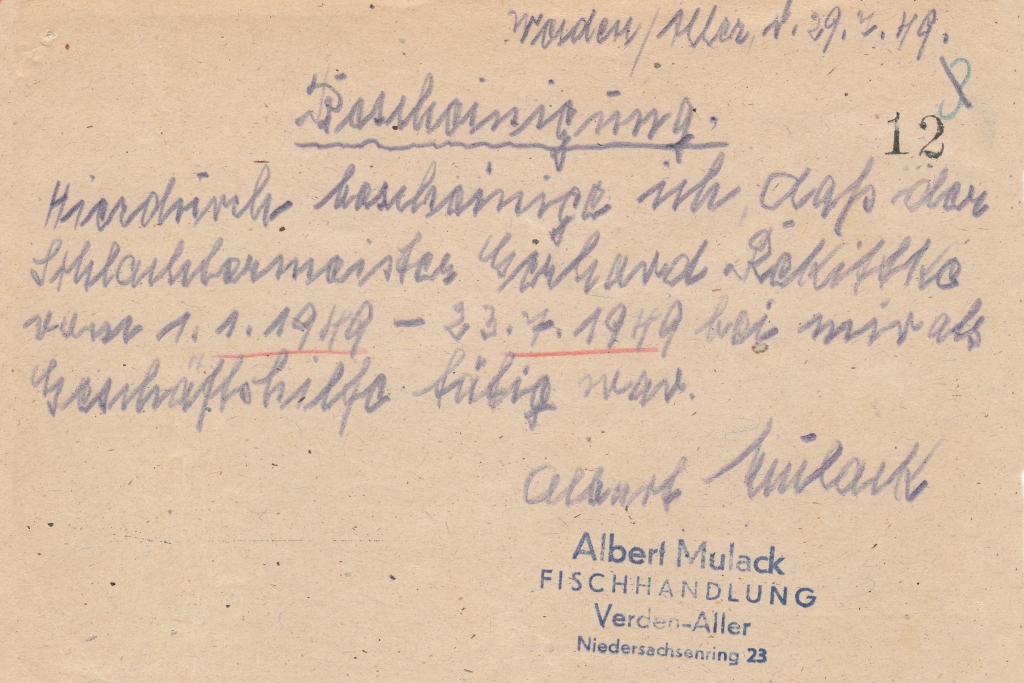 Verden/Aller, d. 29.7.49.
12
Bescheinigung.
Hierdurch bescheinige ich, daß der
Schlachtermeister Gerhard Rekittke
vom 1.1.1949 – 23.7.1949 bei mir als
Geschäftshilfe tätig war.
Albert Mulack
Albert Mulack
FISCHHANDLUNG
Verden-Aller
Niedersachsenring 23